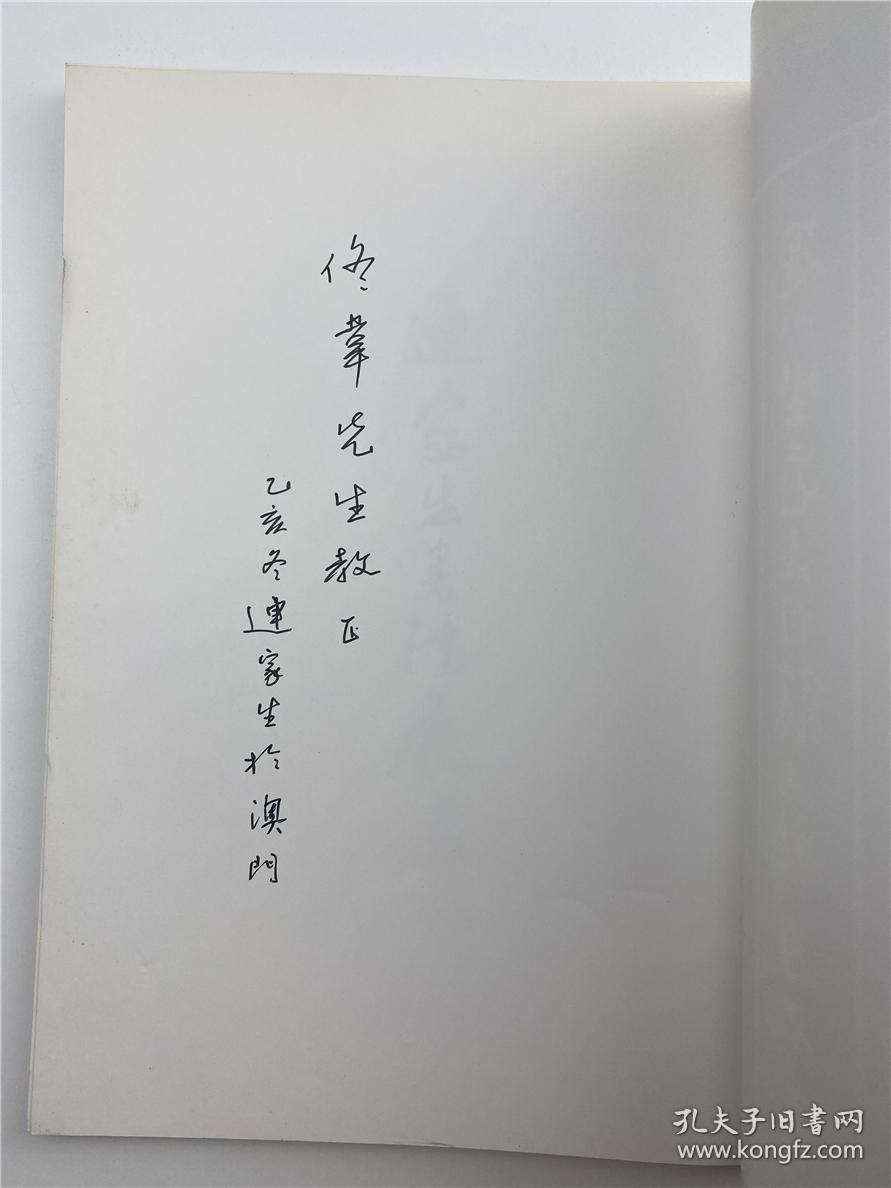 佟韋先生教正
乙亥冬連家生於澳門
孔夫子旧書网
www.kongfz.com